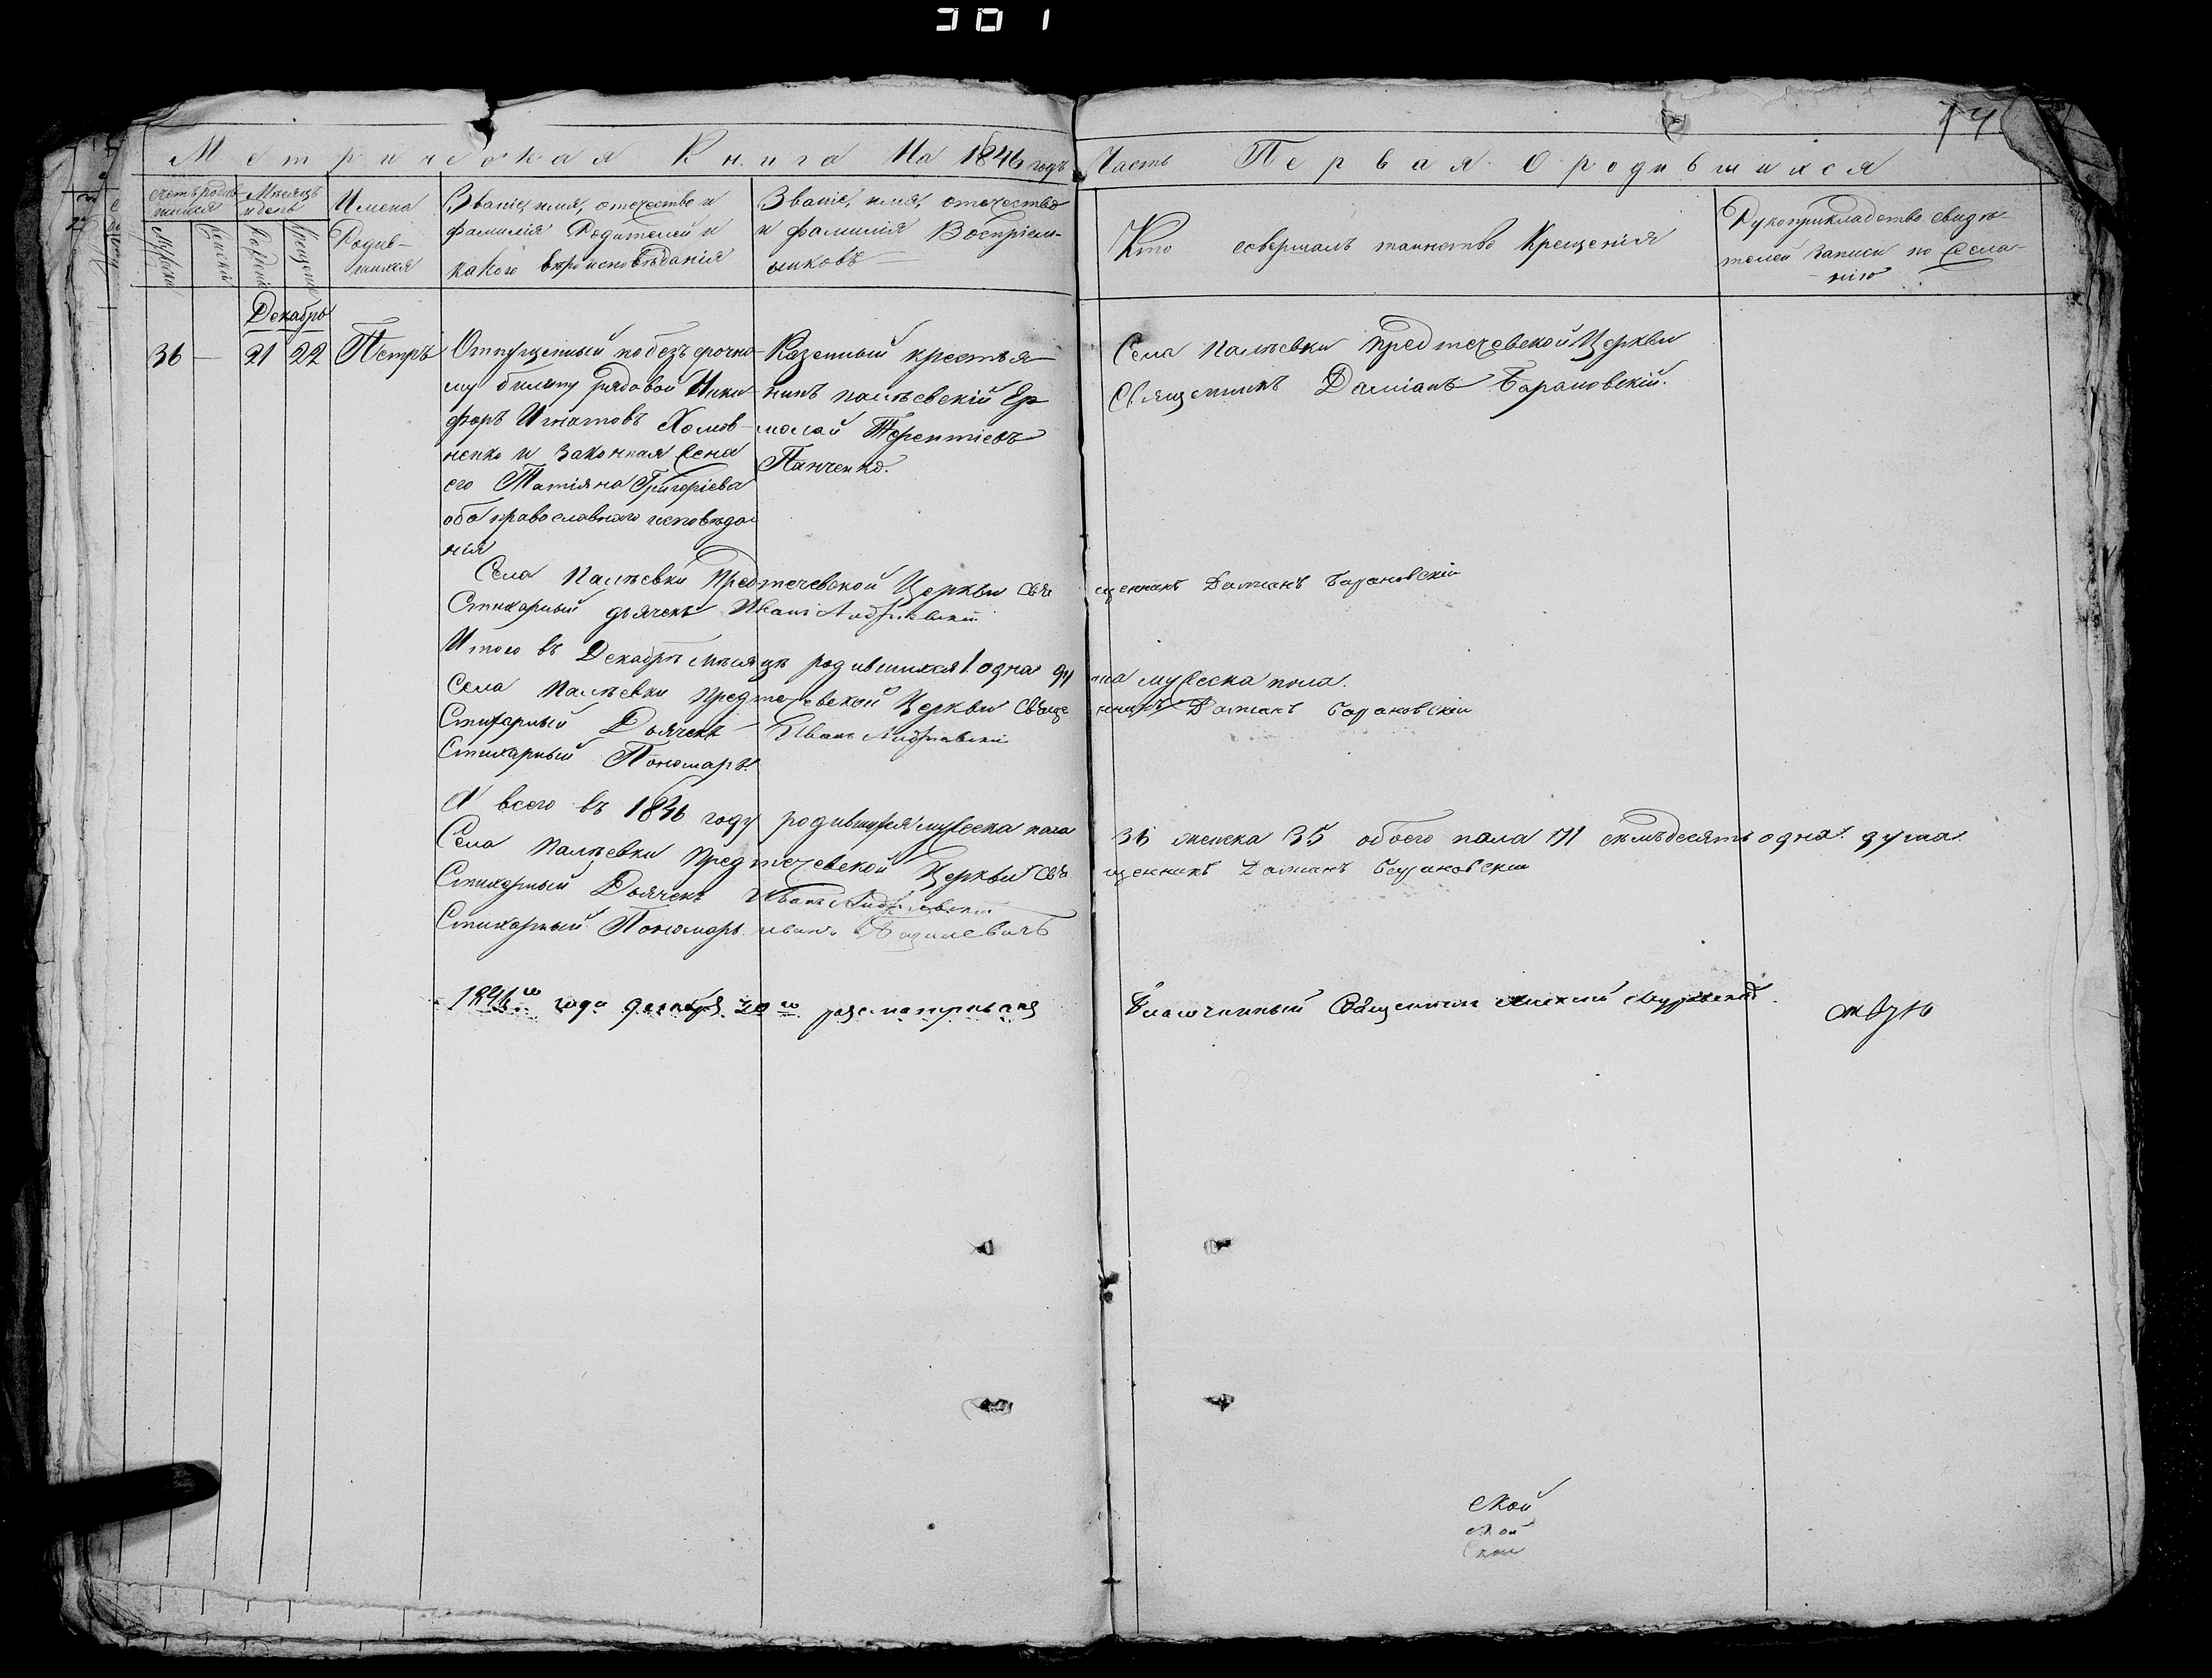 301
74
Метрическая Книга На 1846 годъ Часть Первая О родившихся
Счетъ родив-
шихся
Мужеска
Женска
Мѣсяцъ
и день
Рожденія
Крещенія
Имена
Родив-
шихся
Званіе, имя, отечество и
фамилія Родителей и
какого вѣроисповѣданія
Званіе, имя, отечество
и фамилія Воспріем-
никовъ
Кто совершалъ таинство Крещенія
Рукоприкладство свидѣ-
телей записи по жела-
нію
Декабрь
36 — 21 22 Петръ
Отпущенный по безъ срочно-
му билету рядовой Ники-
форъ Игнатовъ Хомов-
ненко и законная жена
его Татіяна Григоріева
оба православнаго исповѣда-
нія
Казенный крестья-
нинъ палѣевскій Ер-
молай Терентіевъ
Панченко.
Села Палѣевки Предтечевской Церкви
Священникъ Даміанъ Барановскій.
Села Палѣевки Предтечевской Церкви Свя щенникъ Даміанъ Барановскій
Стихарный дьячекъ Иванъ
Итого въ Декабрѣ мѣсяцѣ родившихся 1 одна ду ша мужеска пола.
Села Палѣевки Предтечевской Церкви Свяще нникъ Даміанъ Барановскій
Стихарный Дьячекъ Иванъ
Стихарный Пономарь
А всего въ 1846 году родившихся мужеска пола 36 женска 35 обоего пола 71 семьдесятъ одна душа.
Села Палѣевки Предтечевской Церкви Свя щенникъ Даміанъ Барановскій
Стихарный Дьячекъ Иванъ
Стихарный Пономарь иванъ
1846го года декабря 30го разсматривалъ Благочинный Священникъ
скои
скои
скои